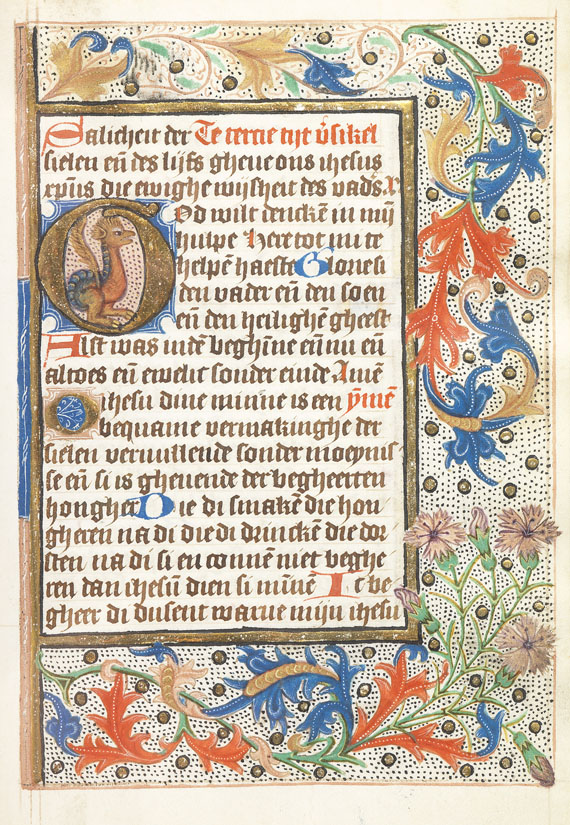 Salicheit der Te tercie tijt v̉sikel
sielen en̄ des lijfs gheue ons ihesus
xp̄us die ewighe wijsheit des vad̉s X
God wilt dencke̅ in mij
hulpe Here tot mi te
helpe̅ haeste Glorie si
den vader en̄ den soen
en̄ den heilighe̅ gheest
Alst was inde̅ beghi̅ne en̄ nu en̄
altoes en̄ ewelic sonder einde Ame̅
ihesu dine minne is een ȳme̅
bequame vermakinghe der
sielen veruullende sonder moeynis
se en̄ si is gheuende der begheerten
hongher Die di smake̅ die hon
gheren na di die di drincke̅ die dor
sten na di si en co̅ne̅ niet beghe
ren dan ihesu̅ dien si mi̅ne̅ Ic be
gheer di dusent warue mijn ihesu